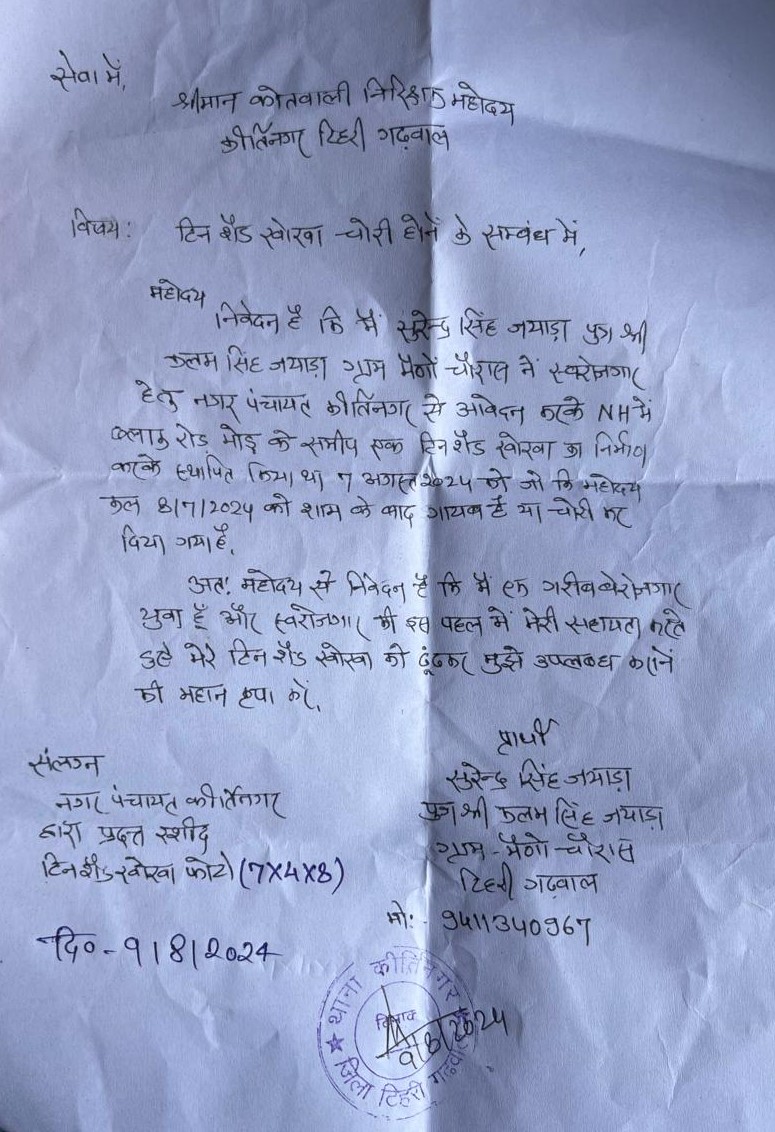 सेवा में,
श्रीमान कोतवाली निरिक्षक महोदय
कीर्तिनगर टिहरी गढ़वाल
विषय: टिन शैड खोखा चोरी होनें के सम्बंध में,
महोदय
निवेदन है कि मैं सुरेन्द्र सिंह जयाड़ा पुत्र श्री
कलम सिंह जयाड़ा ग्राम मैगों चौरास नें स्वरोजगार
हेतु नगर पंचायत कीर्तिनगर से आवेदन करके NH में
ब्लाक रोड मोड़ के समीप एक टिन शैड खोखा का निर्माण
करके स्थापित किया था 7 अगस्त 2024 को जो कि महोदय
कल 8/7/2024 को शाम के बाद गायब है या चोरी कर
दिया गया है.
अतः महोदय से निवेदन है कि मैं एक गरीब बेरोजगार
युवा हूँ और स्वरोजगार की इस पहल में मेरी सहायता करते
हुते मेरे टिन शैड खोखा को ढूंढकर मुझे उपलब्ध करानें
की महान कृपा करें.
संलग्न
नगर पंचायत कीर्तिनगर
द्वारा प्रदत्त रशीद
टिन शैड खोखा फोटो (7X4X8)
दि० - 9/8/2024
प्रार्थी
सुरेन्द्र सिंह जयाड़ा
पुत्र श्री कलम सिंह जयाड़ा
ग्राम - मैगो - चौरास
टिहरी गढ़वाल
मो: - 9411340967
थाना कीर्तिनगर
दिनांक
9/8/2024
जिला टिहरी गढ़वाल